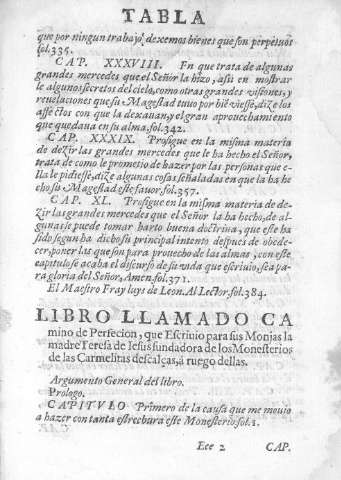 TABLA
que por ningun trabajo dexemos bienes que son perpetuos
fol.335.
CAP. XXXVIII. En que trata de algunas
grandes mercedes que el Señor la hizo, assi en mostrar
le algunos secretos del cielo, como otras grandes visiones, y
reuelaciones que su Magestad tuuo por biē viesse, dize los
affectos con que la dexauan, y el gran aprouechamiento
que quedaua en su alma. fol.342.
CAP. XXXIX. Prosigue en la misma materia
de dezir las grandes mercedes que le ha hecho el Señor,
trata de como le prometio de hazer por las personas que e-
lla le pidiesse, dize algunas cosas señaladas en que la ha he
cho su Magestad este fauor. fol.357.
CAP. XL. Prosigue en la misma materia de de-
zir las grandes mercedes que el Señor la ha hecho, de al-
gunas se puede tomar harto buena doctrina, que este ha
sido segun ha dicho su principal intento despues de obede-
cer, poner las que son para prouecho de las almas, con este
capitulo se acaba el discurso de su vida que escriuio, sea pa-
ra gloria del Señor, Amen. fol.371.
El Maestro Fray luys de Leon. Al Lector. fol.384.
LIBRO LLAMADO CA
mino de Perfecion, que Escriuio para sus Monjas la
madre Teresa de Iesus fundadora de los Monesterios
de las Carmelitas descalças, a ruego dellas.
Argumento General del libro.
Prologo.
CAPITVLO Primero de la causa que me mouio
a hazer con tanta estrechura este Monesterio fol.1.
Eee 2 CAP.